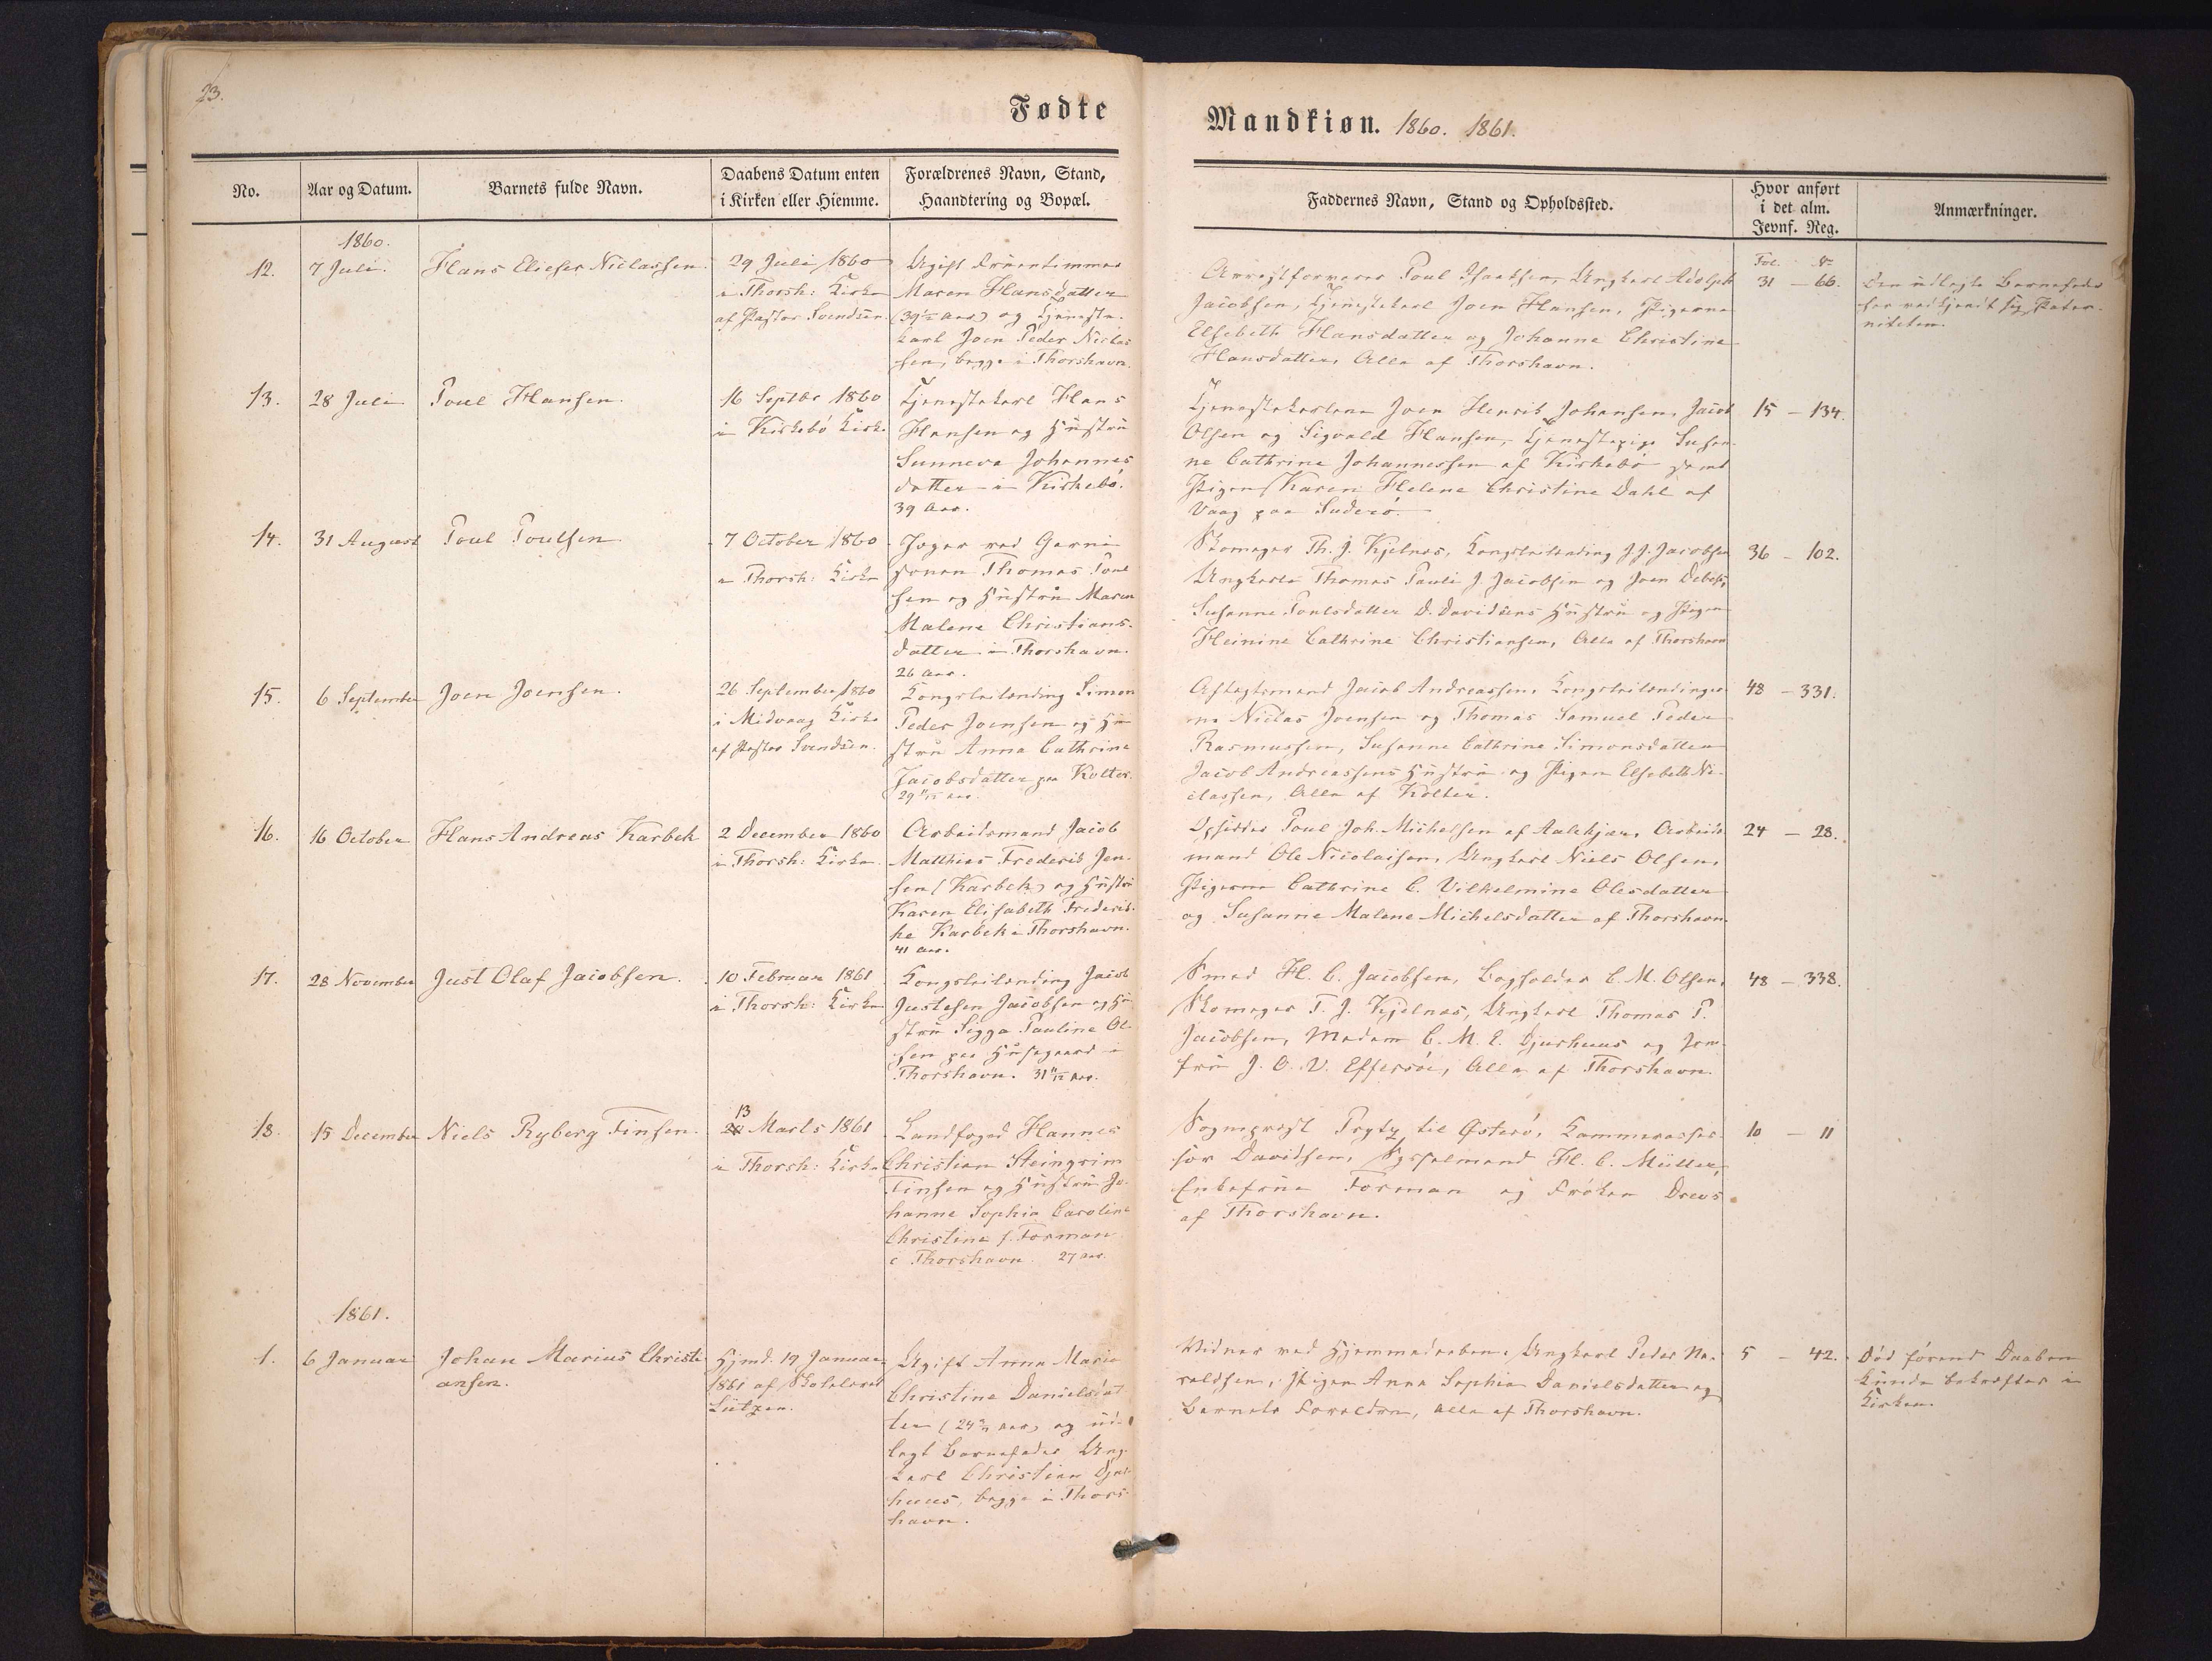 23.
Fødte
Mandkiøn. 1860. 1861.
No.
Aar og Datum.
Barnets fulde Navn.
Daabens Datum enten
i Kirken eller Hiemme.
Forældrenes Navn, Stand,
Haandtering og Bopæl.
Faddernes Navn, Stand og Opholdssted.
Hvor anført
i det alm.
Jevnf. Reg.
Anmærkninger.
1860.
12.
7 Juli.
Hans Elieser Niclassen.
29 Juli 1860
i Thorsh: Kirke
af Pastor Svendsen.
Ugift Fruentimmer
Maren Hansdatter
(39½ Aar) og Tjeneste-
karl Joen Peder Niclas
sen, begge i Thorshavn.
Arrestforvarer Poul Isaksen, Ungkarl Adolph
Jacobsen, Tjenestekarl Joen Hansen, Pigerne
Elsebeth Hansdatter og Johanne Christine
Hansdatter, Alle af Thorshavn.
Fol. No
31 - 66.
Den udlagte Barnefader
har vedkjendt sig Pater-
niteten.
13.
28 Juli
Poul Hansen.
16 Septbr 1860
i Kirkebö Kirke
Tjenestekarl Hans
Hansen og Hustru
Sunneva Johannes
datter i Kirkebö.
39 Aar.
Tjenestekarlene Joen Henrik Johansen, Jacob
Olsen og Sigvald Hansen, Tjenestepige Susan
ne Cathrine Johannessen af Kirkebö samt
Pigen Karen Helene Christine Dahl af
Vaag paa Suderö.
15 - 134.
14.
31 August
Poul Poulsen
7 October 1860
i Thorsh: Kirke
Jæger ved Garni
sonen Thomas Poul
sen og Hustru Maren
Malene Christians-
datter i Thorshavn.
26 Aar.
Skomager Th. J. Kjelnæs, Kongsleilænding J. J. Jacobsen
Ungkarle Thomas Pauli J. Jacobsen og Joen Debes,
Susanne Poulsdatter D. Davidsens Hustru og Pigen
Heinine Cathrine Christiansen, Alle af Thorshavn
36 - 102.
15.
6 September
Joen Joensen.
26 September 1860
i Midvaag Kirke
af Pastor Svendsen.
Kongsleilænding Simon
Peder Joensen og Hu
stru Anna Cathrine
Jacobsdatter paa Kolter.
29 11/12 Aar.
Aftægtsmand Jacob Andreassen, Kongsleilændinger
ne Niclas Joensen og Thomas Samuel Peder
Rasmussen, Susanne Cathrine Simonsdatter
Jacob Andreassens Hustru og Pigen Elsebeth Ni-
classen, Alle af Kolter.
48 - 331.
16.
16 October
Hans Andreas Karbek
2 December 1860
i Thorsh: Kirke.
Arbeidsmand Jacob
Matthias Frederik Jen-
sen (Karbek) og Hustru
Karen Elisabeth Frederik-
ke Karbek i Thorshavn.
41 Aar.
Opsidder Poul Joh. Michelsen af Aalekjær, Arbeids
mand Ole Nicolaisen, Ungkarl Niels Olsen,
Pigerne Cathrine C. Vilhelmine Olesdatter
og Susanne Malene Michelsdatter af Thorshavn.
24 - 28.
17.
28 November
Just Olaf Jacobsen.
10 Februar 1861
i Thorsh: Kirke
Kongsleilænding Jacob
Justesen Jacobsen og Hu
stru Sigga Pauline Ol-
sen paa Husagaard i
Thorshavn. 31 11/12 Aar.
Smed H. C. Jacobsen, Bogholder C. M. Olsen,
Skomager T. J. Kjelnæs, Ungkarl Thomas P.
Jacobsen, Madam C. M. E. Djurhuus og Jom
fru J. O. V. Effersöe, Alle af Thorshavn.
48 - 338.
18.
15 December
Niels Ryberg Finsen.
13
Marts 1861
i Thorsh: Kirke
Landfoged Hannes
Christian Steingrim
Finsen og Hustru Jo-
hanne Sophia Caroline
Christine f. Forman
i Thorshavn 27 Aar.
Sogneprest Prytz til Østerö, Kammerasses-
sor Davidsen, Sysselmand H. C. Müller,
Enkefrue Forman og Frøken Drevs
af Thorshavn.
10 - 11
1861.
1.
6 Januar
Johan Marius Christi
ansen.
Hjmd. 19 Januar
1861 af Skolelærer
Lützen.
Ugift Anna Maria
Christine Danielsdat
ter (24 Aar) og ud-
lagt Barnefader Ung-
karl Christian Djur
huus, begge i Thors-
havn.
Vidner ved Hjemmedaaben: Ungkarl Peder Ha-
raldsen, Pigen Anna Sophia Danielsdatter og
Barnets Forældre, Alle af Thorshavn.
5 - 42.
Död førend Daaben
kunde bekræftes i
Kirken.